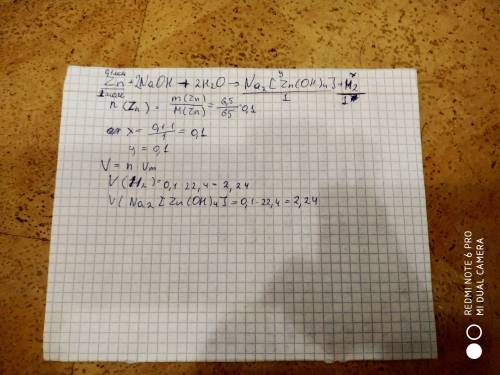 x
y
Zn + 2NaOH + 2H₂O → Na₂[Zn(OH)₄] + H₂
1 1
n(Zn) = m(Zn)/M(Zn) = 6,5/65 = 0,1
x = 0,1·1/1 = 0,1
y = 0,1
V = n · Vm
V(H₂) = 0,1 · 22,4 = 2,24
V(Na₂[Zn(OH)₄] = 0,1 · 22,4 = 2,24
REDMI NOTE 6 PRO
MI DUAL CAMERA